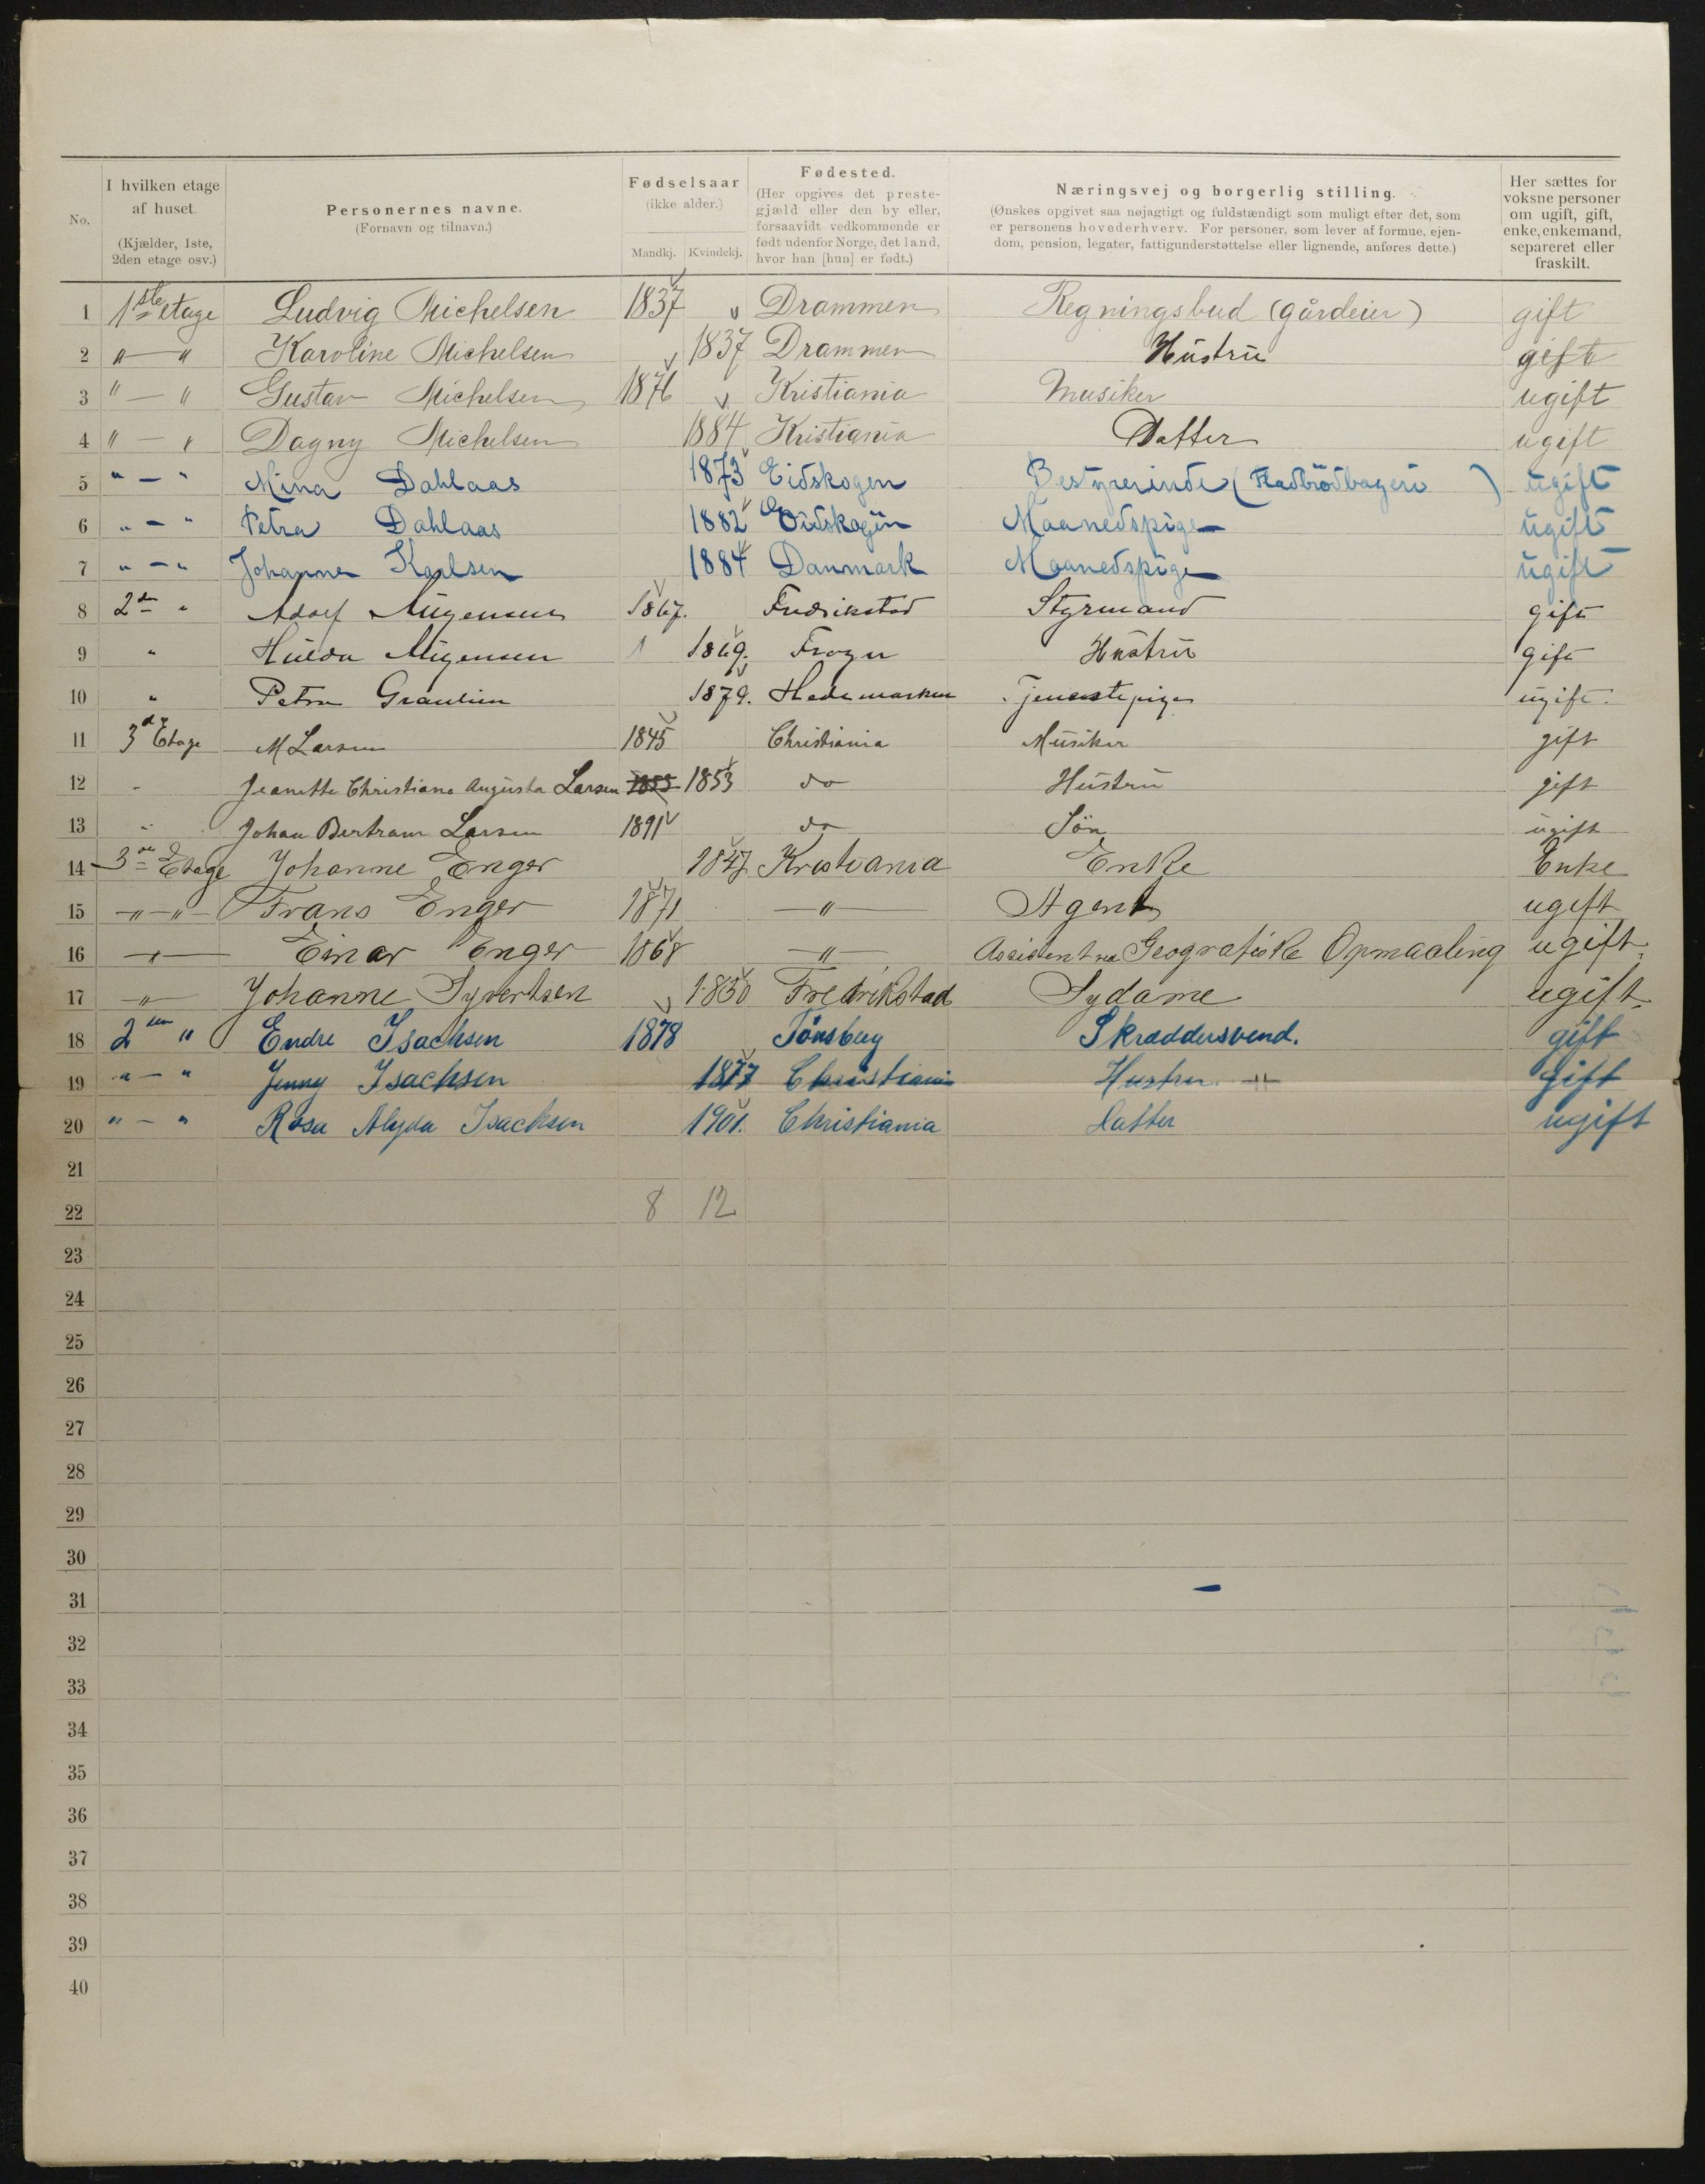 No.
I hvilken etage af huset.
(Kjælder, 1ste, 2den etage osv.)
Personernes navne.
(Fornavn og tilnavn.)
Fødselsaar
(ikke alder.)
Mandkj. Kvindekj.
Fødested.
(Her opgives det preste-
gjæld eller den by eller,
forsaavidt vedkommende er
født udenfor Norge, det land,
hvor han [hun] er født.)
Næringsvej og borgerlig stilling.
(Ønskes opgivet saa nøjagtigt og fuldstændigt som muligt efter det, som
er personens hovederhverv. For personer, som lever af formue, ejen-
dom, pension, legater, fattigunderstøttelse eller lignende, anføres dette.)
Her sættes for
voksne personer
om ugift, gift,
enke, enkemand,
separeret eller
fraskilt.
1 1ste etage Ludvig Michelsen 1837 Drammen Regningsbud (gårdeier) gift
2 " — " Karoline Michelsen 1837 Drammen Hustru gift
3 " — " Gustav Michelsen 1876 Kristiania Musiker ugift
4 " — " Dagny Michelsen 1884 Kristiania Datter ugift
5 " — " Mina Dahlaas 1873 Eidskogen Bestyrerinde (Fladbrödbageri) ugift
6 " — " Petra Dahlaas 1882 Eidskogen Maanedspige ugift
7 " — " Johanne Karlsen 1884 Danmark Maanedspige ugift
8 2den " Adolf 1867. Fredrikstad Styrmand gift
9 " Hulda 1869. Frogn Hustru gift
10 " Petra 1879. Hedemarken Tjenestepige ugift.
11 3de Etage M Larsen 1845 Christiania Musiker gift
12 " Jeanette Christiane Augusta Larsen 1853 1853 do Hustru gift
13 " Johan Bertram Larsen 1891 do Sön ugift
14 3de Etage Johanne Enger 1847 Kristiania Enke Enke
15 — " — " — Frans Enger 1871 — " — Agent ugift
16 — " — Einar Enger 1868 — " — Assistent ved Geografiske Opmaaling ugift.
17 — " — Johanne Syvertsen 1830 Fredrikstad Sydame ugift.
18 2den " Endre Isachsen 1878 Tönsberg Skraddersvend. gift
19 " — " Jenny Isachsen 1877 Christiania Hustru gift
20 " — " Rosa Alyda Isachsen 1901. Christiania Datter ugift
21
22 8 12
23
24
25
26
27
28
29
30
31
32
33
34
35
36
37
38
39
40